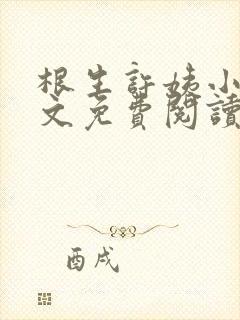 根生許姨小
文免費閱讀
酉戌